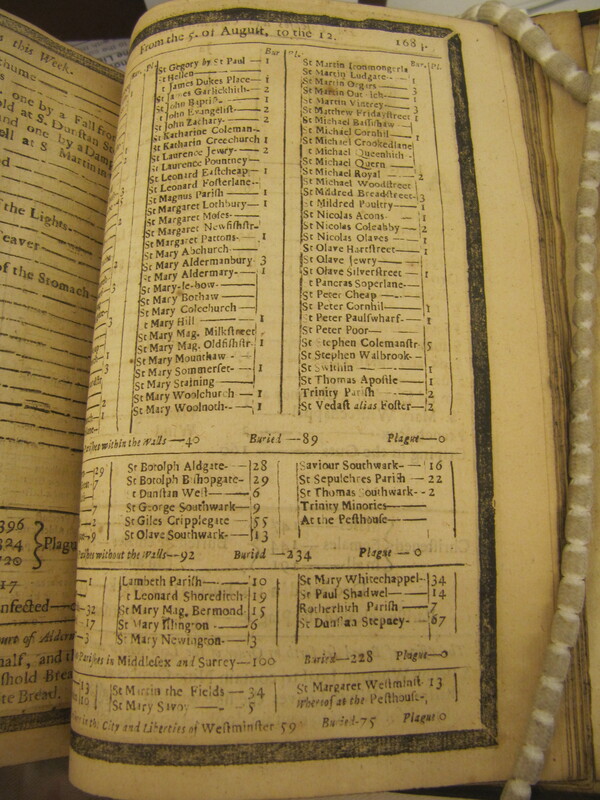 this Week.
one by a Fall from
at S. Dunstan St
and one by a Damp
at S Martin in
the Lights
eaver
of the Stomach
396
324
Plag
17
nfected
ourt of Aldern
half, and
fhold Brea
te Bread.
From the 5. of August, to the 12. 168
Bur Pl.
St Gegory by St Paul — 1
St Hellen
t James Dukes Place — 1
St James Garlickhith — 2
St John Baptist — 1
St John Evangelist — 2
St John Zachary — 2
St Katharine Coleman
St Katharin Creechurch 1
St Laurence Jewry — 2
St Laurence Pountney
St Leonard Eastcheap — 1
St Leonard Fosterlane
St Magnus Parish — 1
St Margaret Lothbury — 1
St Margaret Moses
St Margaret Newfishstr
St Margaret Pattons — 1
St Mary Abchurch
St Mary Aldermanbury 3
St Mary Aldermary — 1
St Mary-le-bow
St Mary Bothaw
St Mary Colechurch
t Mary Hill — 1
St Mary Mag. Milkstreet
St Mary Mag. Oldfishstr 1
St Mary Mounthaw
St Mary Sommerset — 1
St Mary Staining
St Mary Woolchurch — 1
St Mary Woolnoth — 1
Bur. Pl.
St Martin Ironmongerla
St Martin Ludgate — 1
St Martin Orgers
St Martin Outwich — 1
St Martin Vintrey — 3
St Matthew Fridaystreet 1
St Michael Bassishaw
St Michael Cornhil — 1
St Michael Crookedlane
t Michael Queenhith
St Michael Quern
St Michael Royal — 2
St Michael Woodstreet
St Mildred Breadstreet 3
t Mildred Poultry — 1
St Nicolas Acons — 1
St Nicolas Coleabby — 2
St Nicolas Olaves — 1
St Olave Hartstreet — 1
St Olave Jewry
St Olave Silverstreet — 1
t Pancras Soperlane
St Peter Cheap
St Peter Cornhil — 1
t Peter Paulswharf — 1
St Peter Poor
St Stephen Colemanstr 5
St Stephen Walbrook
St Swithin — 1
St Thomas Apostle — 1
Trinity Parish — 2
St Vedast alias Foster — 2
arishes within the Walls — 40 Buried — 89 Plague — 0
St Botolph Aldgate — 28
St Botolph Bishopgate 29
t Dunstan West — 6
St George Southwark — 9
St Giles Cripplegate — 55
St Olave Southwark — 13
Saviour Southwark — 16
St Sepulchres Parish — 22
St Thomas Southwark — 2
Trinity Minories
At the Pesthouse
arishes without the Walls — 92 Buried — 234 Plague — 0
Lambeth Parish — 10
t Leonard Shoreditch 19
St Mary Mag, Bermond 15
St Mary Islington — 6
St Mary Newington 3
St Mary Whitechappel 34
St Paul Shadwel — 14
Rotherhith Parish — 7
St Dunstan Stepney — 67
Parishes in Middlesex and Surrey — 100 Buried — 228 Plague — 0
St Martin the Fields — 34
St Mary Savoy — 5
St Margaret Westminst 13
Whereof at the Pesthouse
in the City and Liberties of Westminster 59 Buried — 75 Plague 0